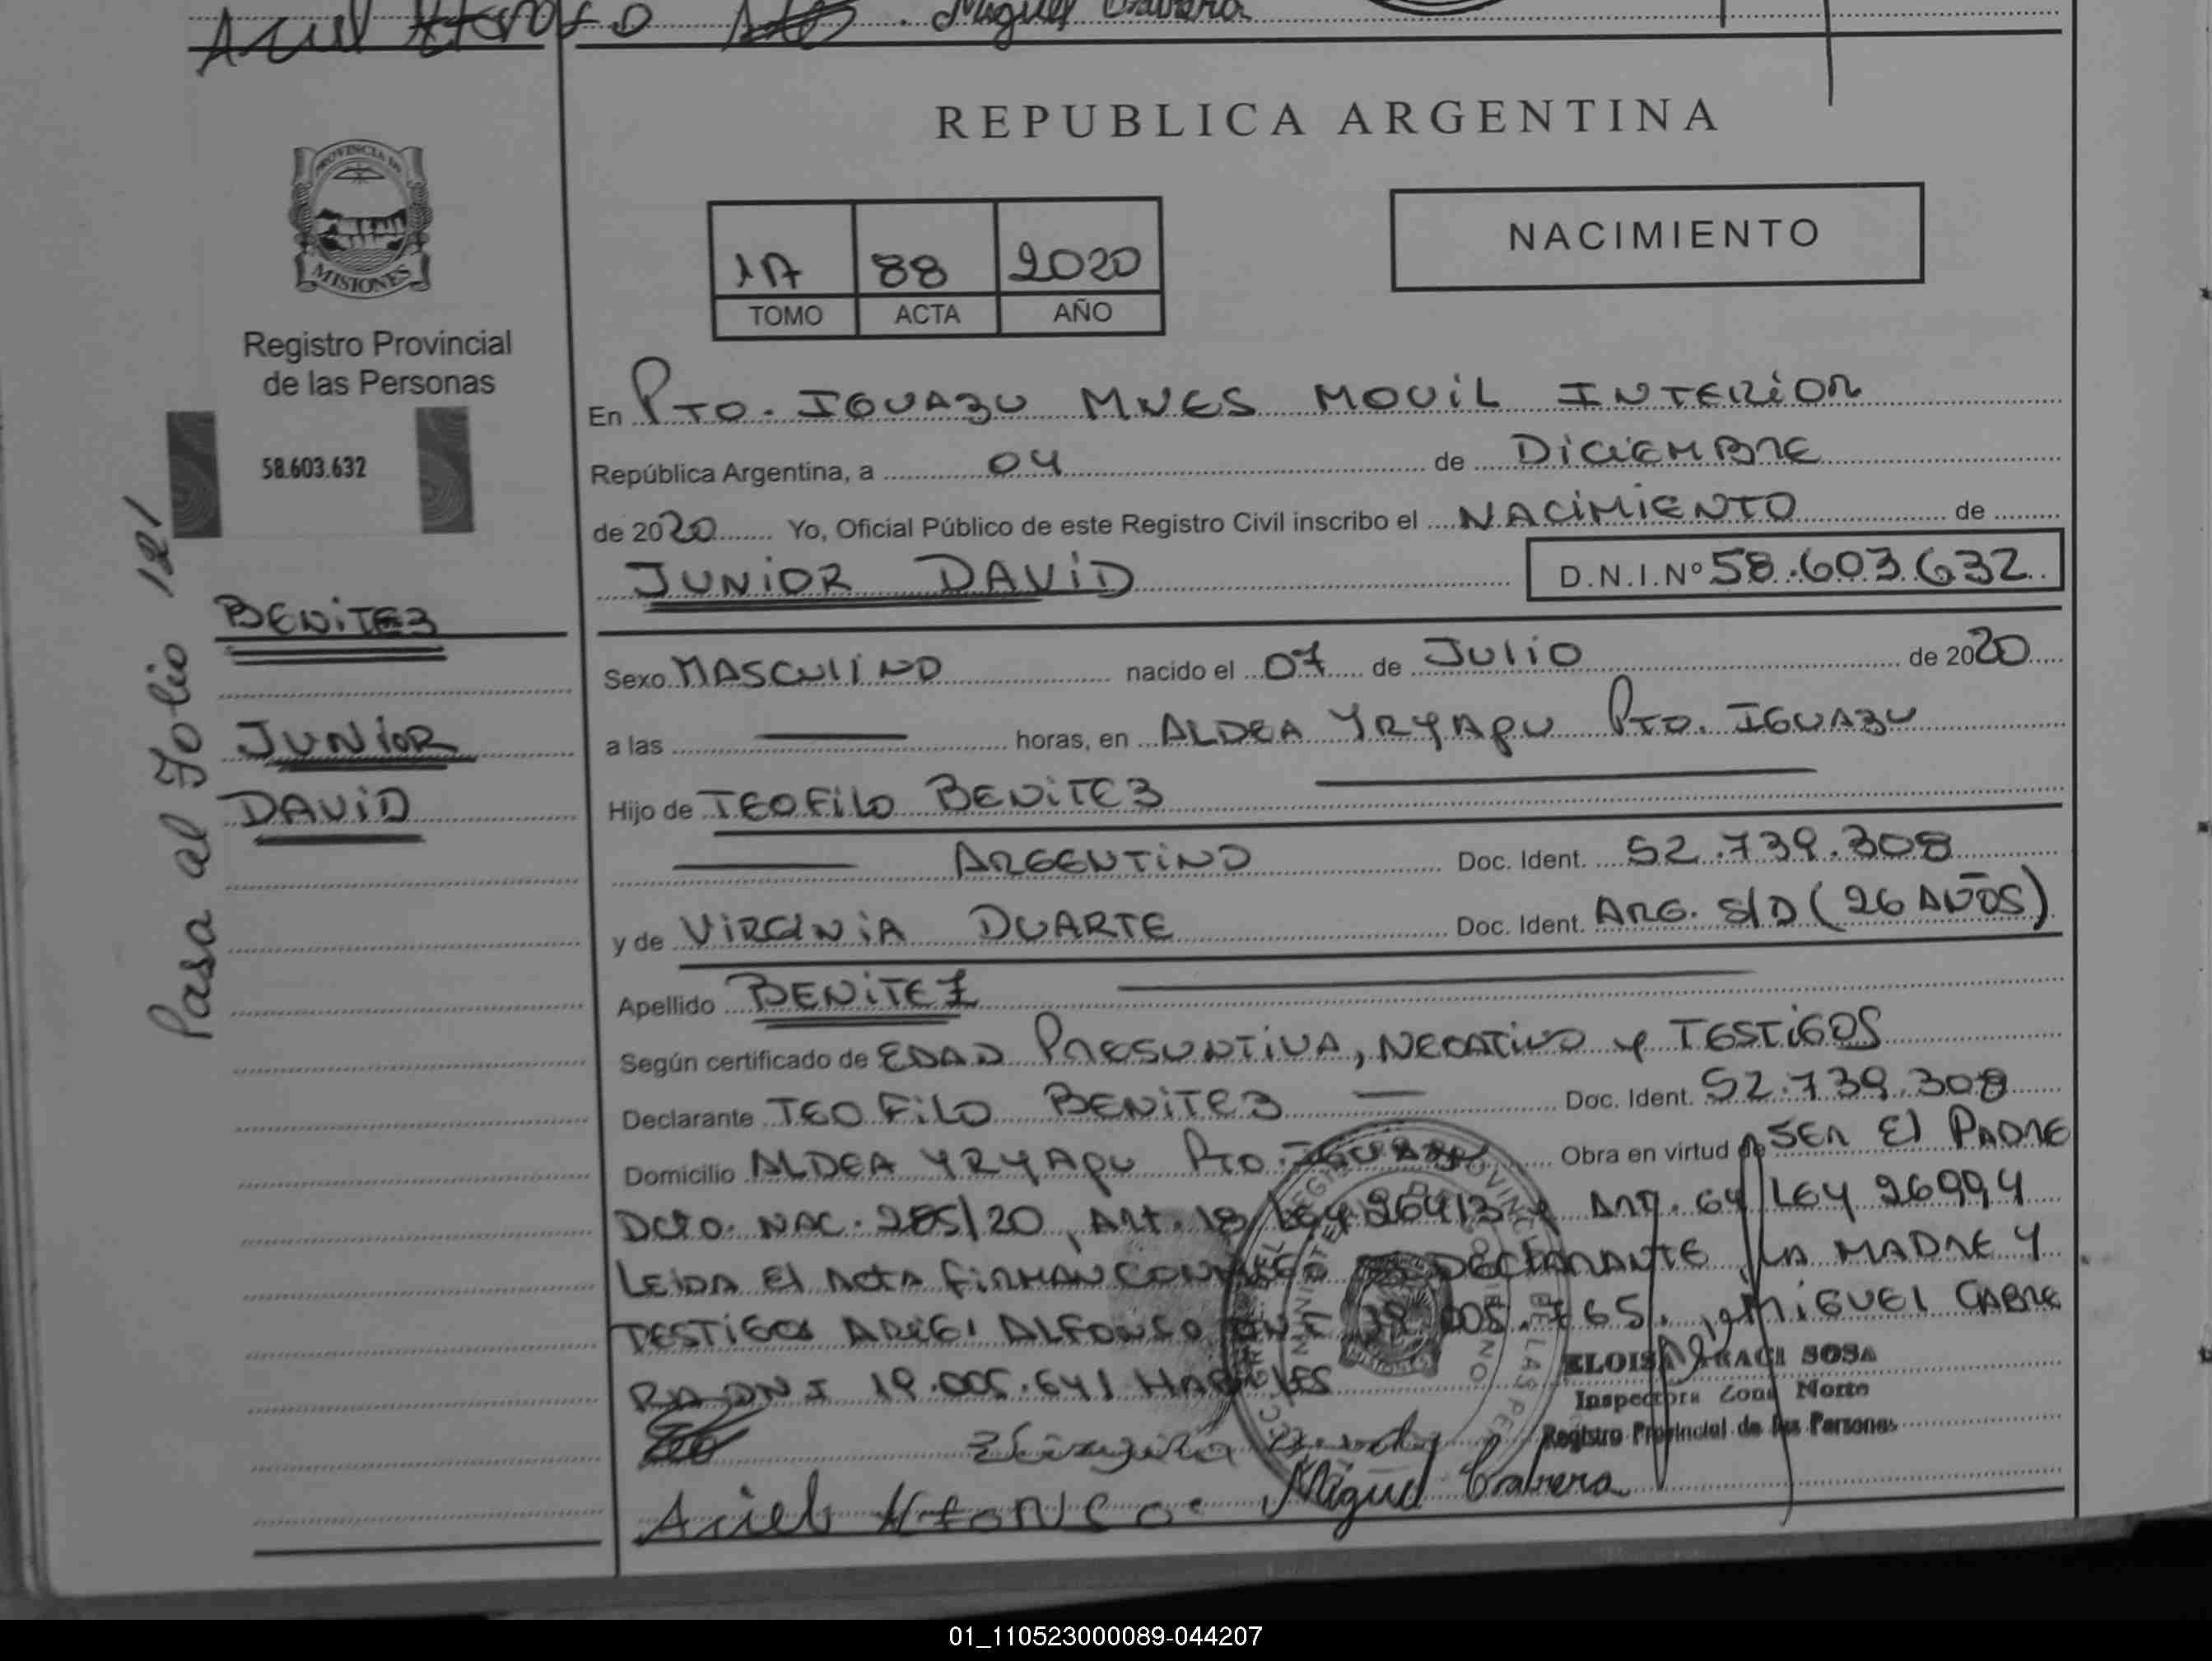 Ariel Alfonso Miguel Cabrera
REPUBLICA ARGENTINA
PROVINCIA DE
MISIONES
Registro Provincial
de las Personas
58.603.632
Pasa al Folio 121
BENITEZ
JUNIOR
DAVID
1A 88 2020
TOMO ACTA AÑO
NACIMIENTO
En PTO. IGUAZU MNES MOVIL INTERIOR
República Argentina, a 04 de DICIEMBRE
de 2020 Yo, Oficial Público de este Registro Civil inscribo el NACIMIENTO de
JUNIOR DAVID D.N.I.Nº 58.603.632
Sexo MASCULINO nacido el 07 de JULIO de 2020
a las horas, en ALDEA YRYAPU PTO. IGUAZU
Hijo de TEOFILO BENITEZ
ARGENTINO Doc. Ident. 52.739.308
y de VIRGINIA DUARTE Doc. Ident. ARG. S/D (26 AÑOS)
Apellido BENITEZ
Según certificado de EDAD PRESUNTIVA, NEGATIVO y TESTIGOS
Declarante TEOFILO BENITEZ Doc. Ident. 52.739.308
Domicilio ALDEA YRYAPU PTO. IGUAZU Obra en virtud de SER El PADRE
DCTO. NAC. 285/20, Art. 18 LEY 26413 y ART. 64 LEY 26994
LEIDA El ACTA FIRMAN CONMIGO DECLARANTE, LA MADRE Y
TESTIGOS ARIEL ALFONSO DNI 005.765. MIGUEL CABRE
RA DNI 19.005.641 HABILES
ELOISA ARACI SOSA
Inspectora Zona Norte
Registro Provincial de las Personas
Ariel Alfonso Miguel Cabrera
01_110523000089-044207